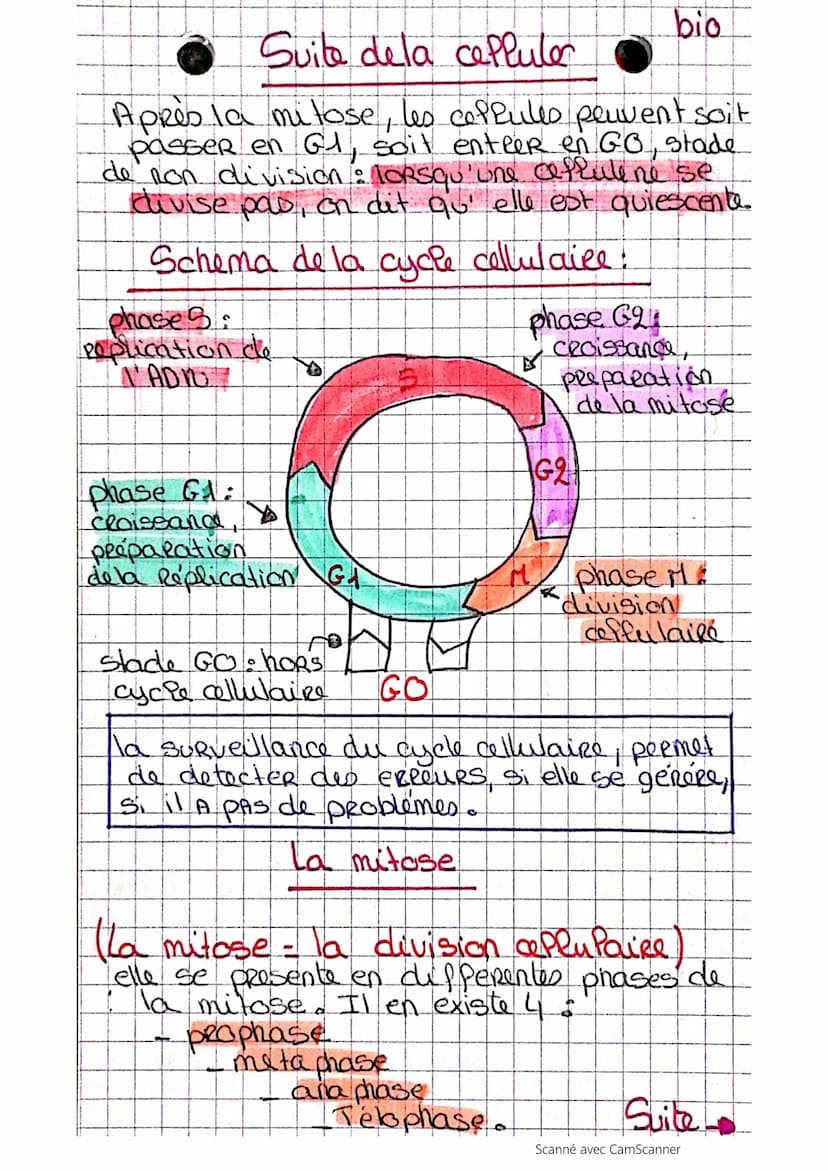 bio
Suite de la celluler
Après la mitose, les cellules peuvent soit
passer en G1, soit enteer en GO, stade
de non division : lorsqu'une cellule ne se
divise pas, on dit qu'elle est quiescente.
Schema de la cycle cellulaire :
phase S :
replication de
l'ADN
phase G2 :
croissance,
preparation
de la mitose
S
G2
phase G1 :
croissance,
préparation
de la Réplication
G1
M
phase M :
division
cellulaire
stade GO : hors
cycle cellulaire
GO
la surveillance du cycle cellulaire, permet
de detecter des erreurs, si elle se génére,
si il A pas de problémes.
La mitose
(La mitose = la division cellulaire)
elle se presente en differentes phases de
la mitose. Il en existe 4 :
- prophase
- meta phase
- ana phase
- Télophase.
Suite
Scanné avec CamScanner